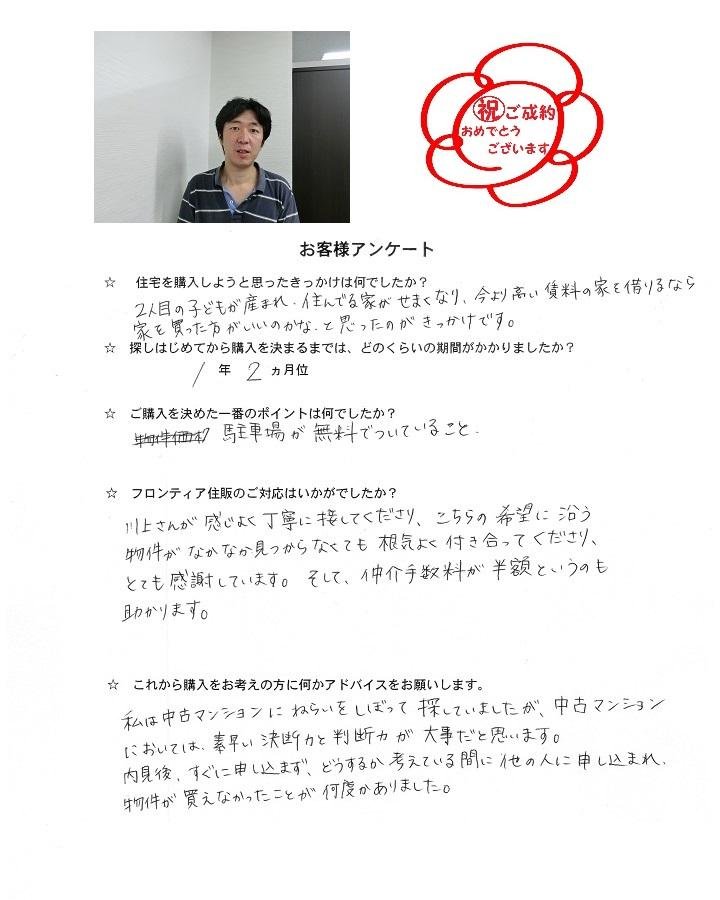 ㊗ご成約
おめでとう
ございます
お客様アンケート
☆ 住宅を購入しようと思ったきっかけは何でしたか？
2人目の子どもが産まれ、住んでる家がせまくなり、今より高い賃料の家を借りるなら
家を買った方がいいのかな、と思ったのがきっかけです。
☆ 探しはじめてから購入を決まるまでは、どのくらいの期間がかかりましたか？
1 年 2 ヵ月位
☆ ご購入を決めた一番のポイントは何でしたか？
駐車場が無料でついていること.
☆ フロンティア住販のご対応はいかがでしたか？
川上さんが感じよく丁寧に接してくださり、こちらの希望に沿う
物件がなかなか見つからなくても根気よく付き合ってくださり、
とても感謝しています。そして、仲介手数料が半額というのも
助かります。
☆ これから購入をお考えの方に何かアドバイスをお願いします。
私は中古マンションにねらいをしぼって探していましたが、中古マンション
においては、素早い決断力と判断力が大事だと思います。
内見後、すぐに申し込まず、どうするか考えている間に他の人に申し込まれ、
物件が買えなかったことが何度かありました。